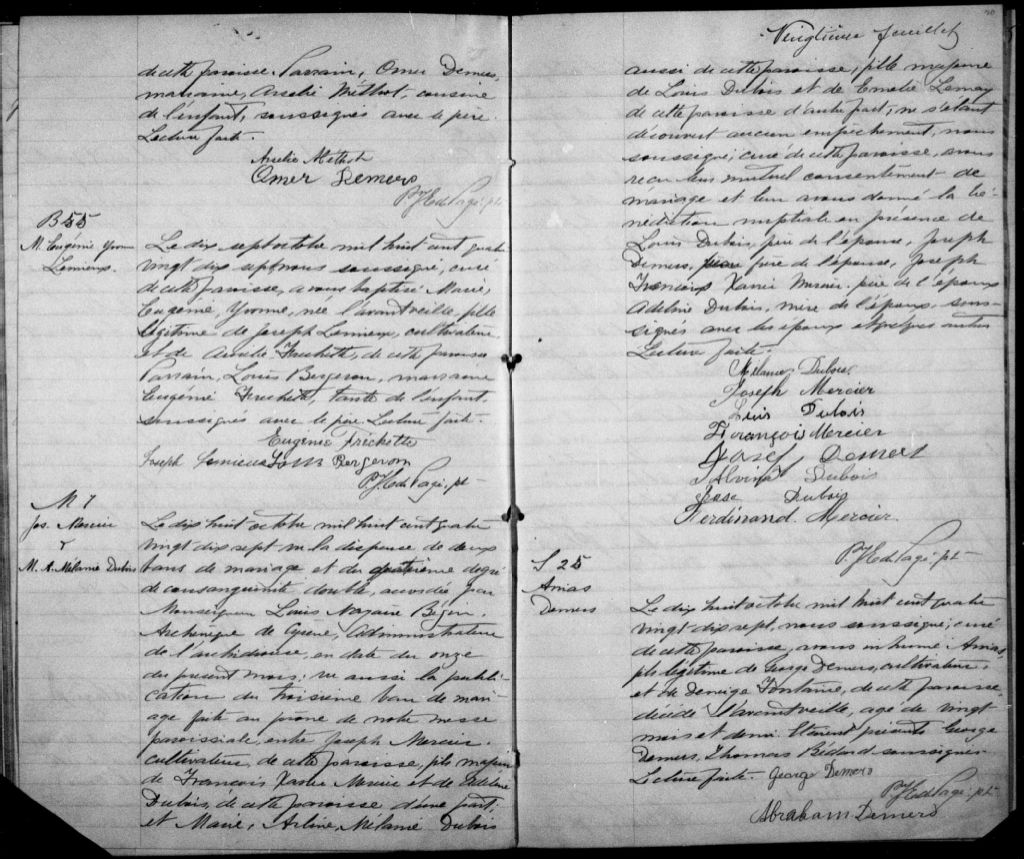 de cette paroisse. Parrain, Omer Demers,
marraine, Aurelie Méthot, cousine
de l'enfant, soussignés avec le père.
Lecture faite.
Aurelie Methot
Omer Demers
B 55
M. Eugénie Yvonne
Lemieux.
Le dix sept octobre mil huit cent quatre
vingt dix sept, nous soussigné, curé
de cette paroisse, avons baptisé Marie,
Eugénie, Yvonne, née l'avant veille, fille
légitime de Joseph Lemieux, cultivateur,
et de Aurélie Frechette, de cette paroisse
Parrain, Louis Bergeron, marraine
Eugénie Frechette, tante de l'enfant
soussignés avec le père. Lecture faite.
Eugénie Frichette
Joseph Lemieux Louis Bergeron
M 7
Jos. Mercier
&
M. A. Mélanie Dubois
Le dix huit octobre mil huit cent quatre
vingt dix sept vu la dispense de deux
bans de mariage et du quatrième degré
de consanguinité double, accordée par
Monseigneur Louis Nazaire Bégin,
Archevêque de Cyrène, Administrateur
de l'archidiocèse, en date du onze
du présent mois; vu aussi la publi-
cation du troisième ban de mari-
age faite au prône de notre messe
paroissiale, entre Joseph Mercier,
cultivateur, de cette paroisse, fils majeur
de François Xavier Mercier et de Adeline
Dubois, de cette paroisse d'une part;
et Marie, Arline, Mélanie Dubois
Vingtième feuillet
aussi de cette paroisse, fille majeure
de Louis Dubois et de Emelie Lemay
de cette paroisse d'autre part; ne s'étant
découvert aucun empêchement, nous
soussigné, curé de cette paroisse, avons
reçu leur mutuel consentement de
mariage et leur avons donné la bé-
nédiction nuptiale en présence de
Louis Dubois, père de l'épouse, Joseph
Demers, frère de l'épouse, Joseph
François Xavier Mercier, père de l'époux
Adeline Dubois, mère de l'époux, sous-
signés avec les époux et quelques autres
Lecture faite.
Mélanie Dubois
Joseph Mercier
Luis Dubois
François Mercier
Josef Demers
Alvina Dubois
Jose Dubois
Ferdinand Mercier
S 25
Amas
Demers
Le dix huit octobre mil huit cent quatre
vingt dix sept, nous soussigné, curé
de cette paroisse, avons inhumé Amas,
fils légitime de George Demers, cultivateur,
et de Demige Fontaine, de cette paroisse,
décédé l'avant veille, agé de vingt
mois et demi. Etaient présents George
Demers, Thomas Bédard soussignés
Lecture faite. George Demers
Abraham Demers